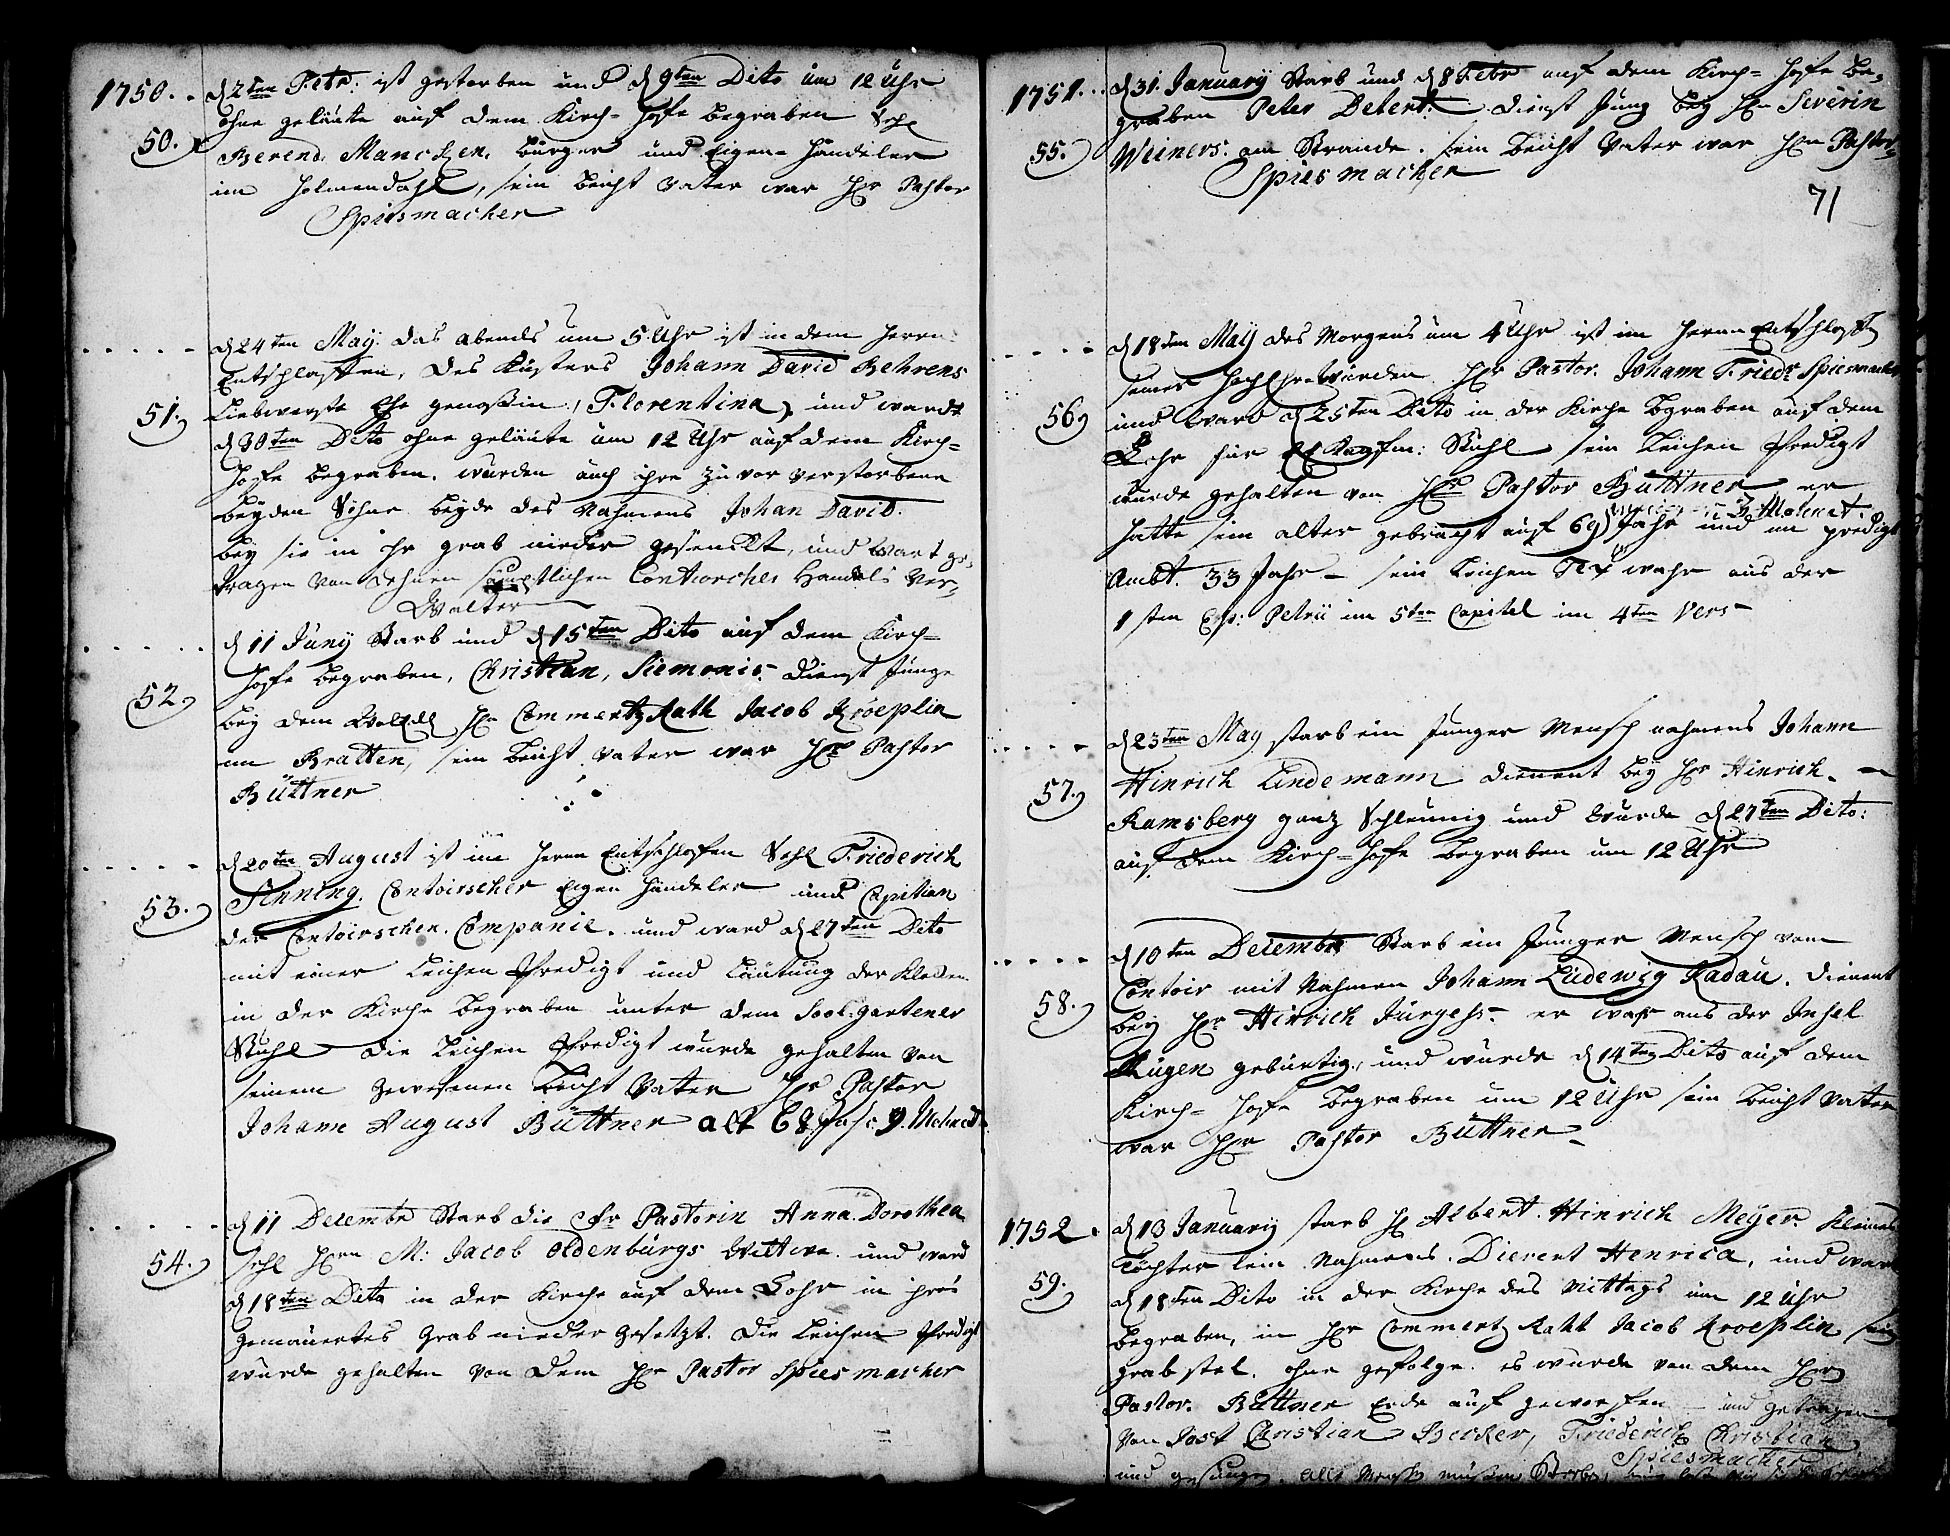 1750. d 2ten Febr: ist gestorben und d 9ten Dito um 12 Uhr
ohne geläute auf dem Kirch-Hofe begraben Sehl
50. Berend Mancken, bürger und Eigen-Händeler
im Holmendahl, sein beicht Vater war Hr Pastor
Spiesmacher
d 24ten Maij das abends um 5 Uhr ist in dem Herrn
Entschlaffen, des Küsters Johann David Behrens
51. Liebwerste Ehe genoßin, Florentina, und wardt
d 30ten Dito ohne geläute um 12 Uhr auf dem Kirch-
Hofe begraben. wurden auch ihre zu vor verstorbene
beyden Söhne beyde des Nahmens Johan David.
bey sie in ihr grab nieder gesenckt, und wart ge-
tragen von Contorischer Handels Ver-
Walter
d 11 Junij Starb und d 15ten Dito auf dem Kirch-
Hofe begraben, Christian, Siemonis. Dienst Junge
52. bey dem Hr Commertz Rath Jacob Kröeplin
im Bratten, sein beicht Vater war Hr Pastor
Büttner
d 20ten August ist im Herrn Entschlafen Sehl Friederich
Sinning. Contoirscher Eigen Händeler und Capitian
53. der Contoirschen. Companie. und ward d 27ten Dito
mit einer Leichen Predigt und Läutung der Klocken
in der Kirche begraben unter dem Sool-gartener
Stuhl die Leichen Predigt wurde gehalten von
seinem gewesenen beicht Vater Hr Pastor
Johann August Büttner alt 68 Jahr 9. Mohnat
d 11 Decembr Starb die Fr Pastorin Anna Dorothea
Sehl Hrn M: Jacob Oldenburgs Wittwe. und ward
54. d 18ten Dito in der Kirche auf dem Cohr in ihres
gemauertes Grab nieder gesetzt. die Leichen Predigt
wurde gehalten von dem Hr Pastor Spiesmacher
1751. d 31. Januarij Starb und d 8 Febr auf dem Kirch-Hofe be-
graben Peter Detent. dienst Jung bey Hr Severin
55. Weiners. am Strande. sein beicht Vater war Hrn Pastor
Spiesmacher
71
d 18ten Maij des Morgens um 4 Uhr ist im Herrn Entschlaffen
seiner Hoch Ehr-würden Hr Pastor. Johann Friedr Spiesmacher
56. und ward d 25ten Dito in der Kirche begraben auf dem
Cohr für Kaufm: Stuhl sein Leichen Predigt
wurde gehalten von Hrn Pastor Büttner er
3 Mohnat
hatte sein alter gebracht auf 69 Jahr und im predigt
Ambt. 33 Jahr - sein Leichen Text wahr aus der
1sten Ep: Petrii im 5ten Capitel im 4ten Vers
d 23ten May starb ein junger Mensch nahmens Johann
57. Hinrich Lindemann dienent bey Hr Hinrich.
Ramsberg ganz Schleunig und wurde d 27ten Dito:
auf dem Kirch-Hofe begraben um 12 Uhr
d 10ten Decembr Starb ein Junger Mensch vom
58. Contoir mit Nahmen Johann Ludewig Radau. dienent
bey Hr Hinrich Jürgens. er wahr aus der Insel
Rügen gebürtig, und wurde d 14ten Dito auf dem
Kirch-Hofe begraben um 12 Uhr sein beicht Vater
war Hrn Pastor Büttner
1752. d 13 Januarij starb H Albert. Hinrich Meyer Kleines
Töchter lein Nahmens. Dierent Henrica, und war
59. d 18ten Dito in der Kirche des Mittags um 12 Uhr
begraben, in Hr Commertz Raht Jacob Kroeplin sein
grab stel. ohne gefolge. es wurde von dem Hrn
Pastor. Büttner Erde auf geworfen und getragen
von Jost Christian Becker, Friederich Christian
Spiesmacher
und gesungen. Alle Mensch müssen Sterben